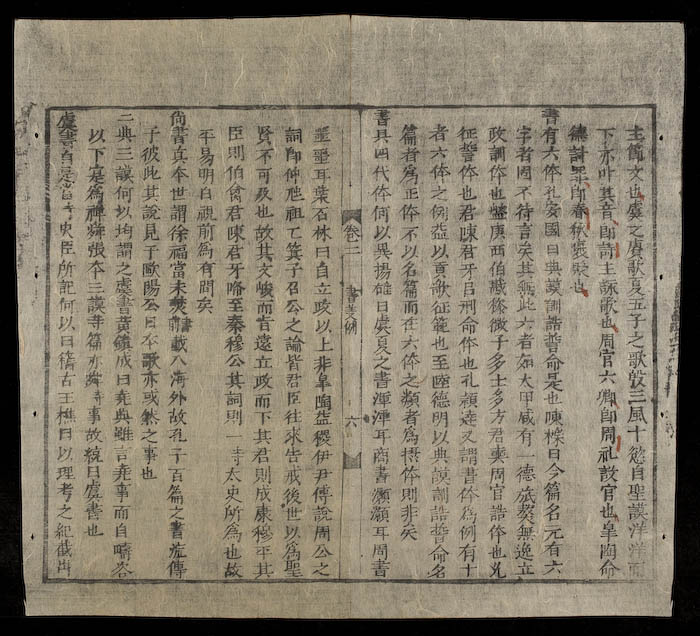 主文也虞之賡歌夏五子之歌殷三風十愆自聖謨洋洋而
下亦叶其音即詩主詠歌也周官六卿即周礼設官也皐陶命
德討罪即春秋褒貶也
書有六体孔安國曰典謨訓誥誓命是也陳櫟曰今篇名元有六
字者固不待言矣其無此六者如太甲咸有一德旅獒無逸立
政訓体也盤庚西伯戡黎微子多士多方君奭周官誥体也允
征誓体也君陳君牙呂刑命体也孔穎達又謂書体爲例有十
者六体之例益以貢歌征範也至陸德明以典謨訓誥誓命名
篇者爲正体不以名篇而在六体之類者爲攝体則非矣
書具四代体何以異揚雄曰虞夏之書渾渾耳商書灝灝耳周書
卷二 書義例 六
噩噩耳葉石林曰自立政以上非皐陶益稷伊尹傅說周公之
詞即仲虺祖己箕子召公之論皆君臣往來告戒後世以爲聖
賢不可及也故其文峻而旨遠立政而下其君則成康穆平其
臣則伯禽君陳君牙畧至秦穆公其詞則一時太史所爲也故
平易明白視前爲有間矣
尚書真本世謂徐福當未焚書前載入海外故孔子百篇之書旋傳
于彼此其說見于歐陽公日本歌亦或然之事也
二典三謨何以均謂之虞書黃鎮成曰堯典雖言堯事而自疇咨
以下寔爲禪舜張本三謨等篇亦舜時事故統曰虞書也
虞書自是當時史臣所記何以曰稽古王樵曰以理考之紀載出